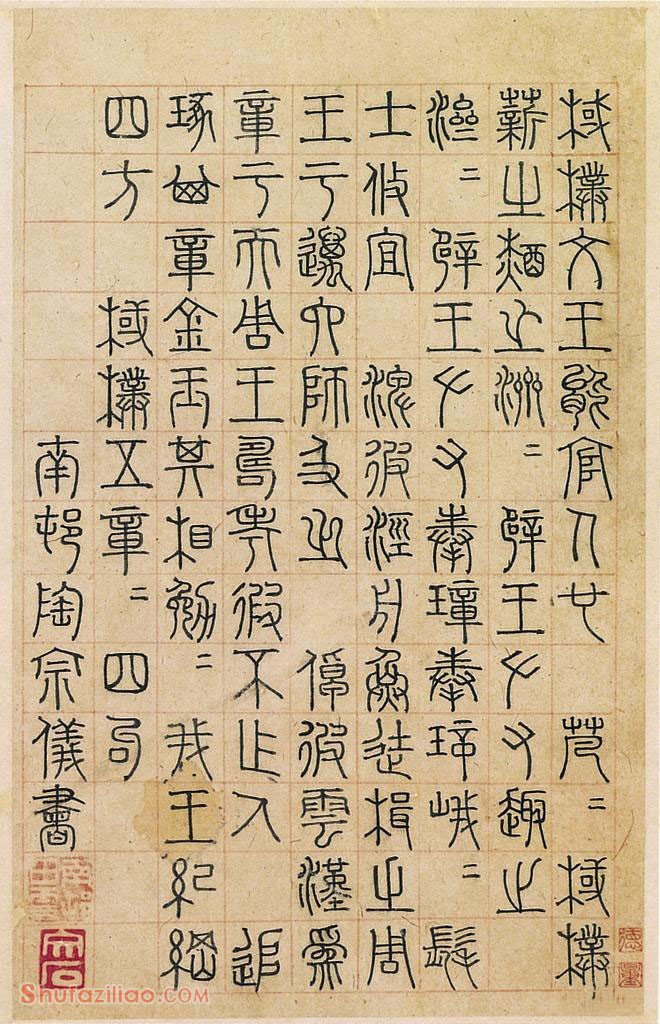 棫樸文王能官人也 芃〻棫樸
薪之槱之濟〻辟王左右趣之
濟〻辟王左右奉璋奉璋峨〻髦
士攸宜 淠彼涇舟烝徒楫之周
王于邁六師及之 倬彼雲漢爲
章于天周王壽考遐不作人 追
琢其章金玉其相勉〻我王紀綱
四方 棫樸五章〻四句
南邨陶宗儀書
Shufaziliao.com